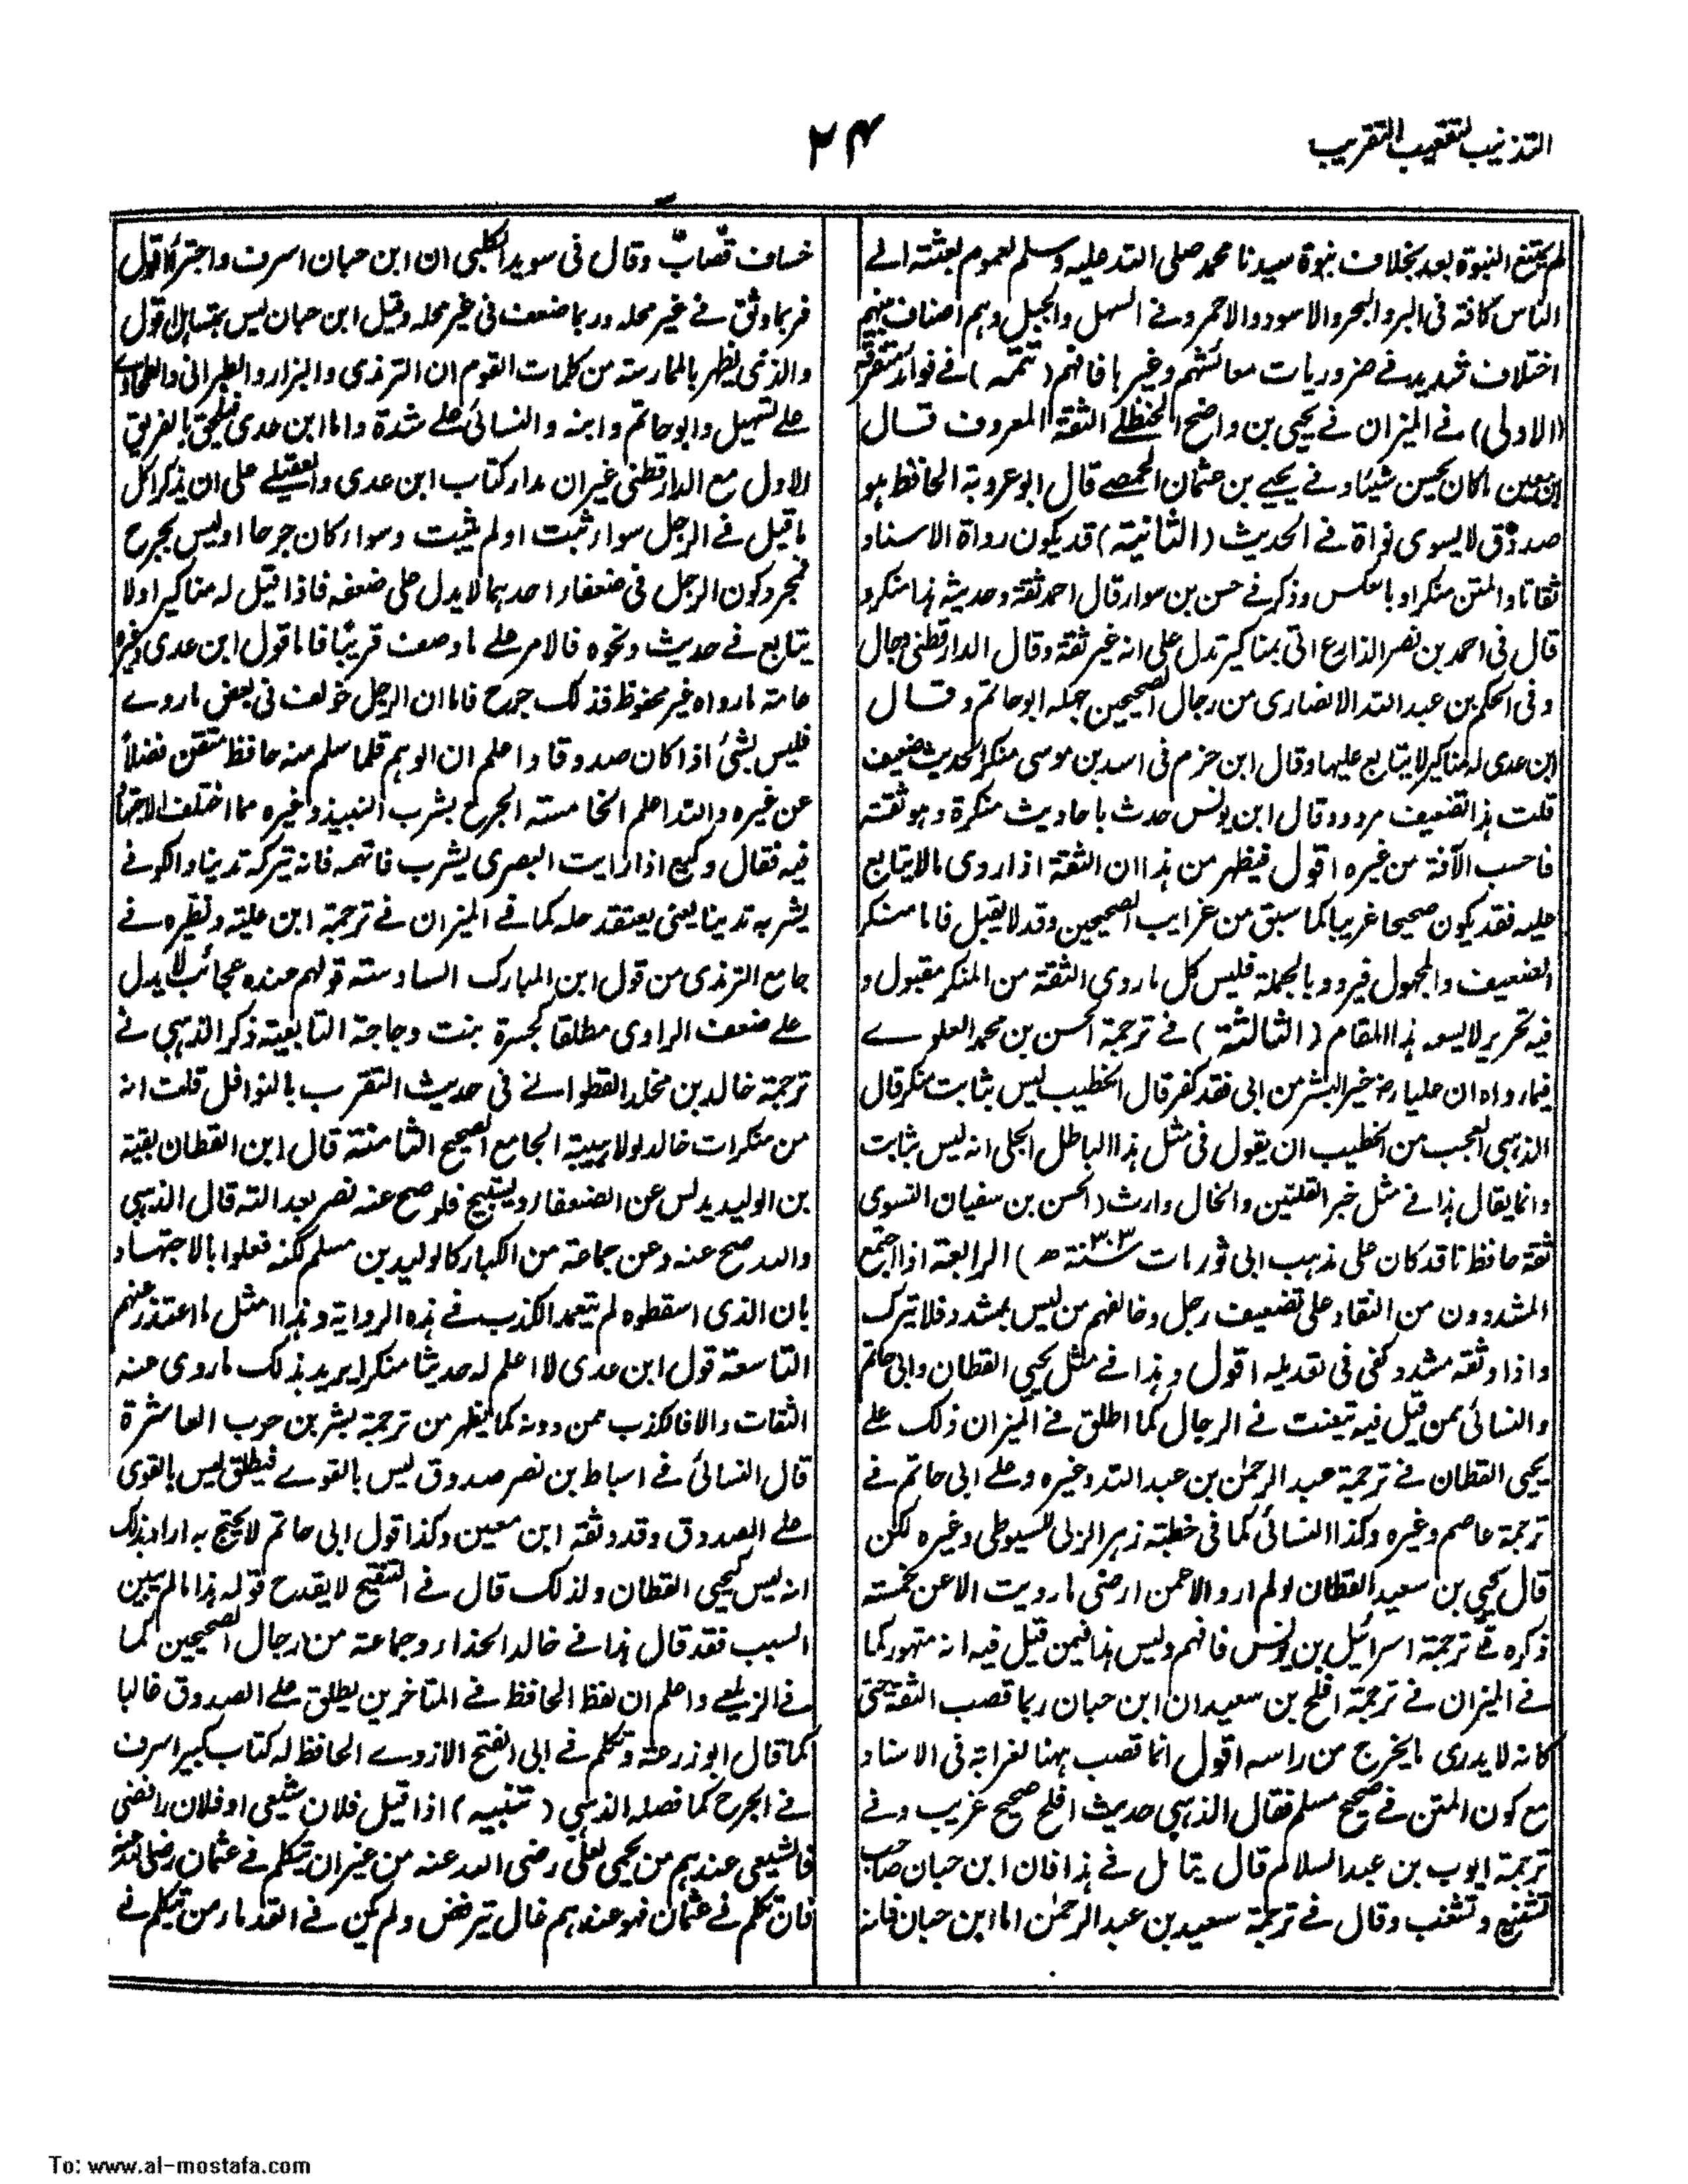 التذنيب لتعقيب التقريب
۲۴
لم يمتنع النبوة بعده بخلاف نبوة سيدنا محمد صلى الله عليه وسلم لعموم بعثته الى
الناس كافة فى البر والبحر والاسود والاحمر وفى السهل والجبل وهم اصناف بينهم
اختلاف شديد فى ضروريات معائشهم وغيرها فافهم (تتمه) فى فوائد متفرقة
(الاولى) فى الميزان فى يحيى بن واضح الحنظلى الثقة المعروف قال
ابن معين ما كان يحسن شيئا وفى يحيى بن عثمان الحمصى قال ابو عروبة الحافظ هو
صدوق لا يسوى نواة فى الحديث (الثانية) قد يكون رواة الاسناد
ثقاتا والمتن منكرا وبالعكس وذكر فى حسن بن سوار قال احمد ثقة وحديثه هذا منكر و
قال فى احمد بن نصر الذارع اتى بمناكير تدل على انه غير ثقة وقال الدارقطنى دجال
وفى الحكم بن عبد الله الانصارى من رجال الصحيحين جهله ابو حاتم وقال
ابن عدى له مناكير لا يتابع عليها وقال ابن حزم فى اسد بن موسى منكر الحديث ضعيف
قلت هذا تضعيف مردود وقال ابن يونس حدث باحاديث منكرة وهو ثقة
فاحسب الآفة من غيره اقول فيظهر من هذا ان الثقة اذا روى ما لا يتابع
عليه فقد يكون صحيحا غريبا كما سبق من غرايب الصحيحين وقد لا يقبل فاما منكر
الضعيف والمجهول فيرد وبالجملة فليس كل ما روى الثقة من المنكر مقبول و
فيه تحرير لا يسعه هذا المقام (الثالثة) فى ترجمة الحسن بن محمد العلوى
فيما رواه ان عليا رض خير البشر من ابى فقد كفر قال الخطيب ليس بثابت منكر قال
الذهبى العجب من الخطيب ان يقول فى مثل هذا الباطل الجلى انه ليس بثابت
وانما يقال هذا فى مثل خبر القلتين والخال وارث (الحسن بن سفيان النسوى
ثقة حافظ ناقد كان على مذهب ابى ثور مات سنة ۳۰۳ ھ) الرابعة اذا اجتمع
المشددون من النقاد على تضعيف رجل وخالفهم من ليس بمشدد فلا يترك
واذا وثقه مشدد كفى فى تعديله اقول وهذا فى مثل يحيى القطان وابى حاتم
والنسائى ممن قيل فيه تيعنت فى الرجال كما اطلق فى الميزان ذلك على
يحيى القطان فى ترجمة عبد الرحمٰن بن عبد الله وغيره وعلى ابى حاتم فى
ترجمة عاصم وغيره وكذا النسائى كما فى خطبة زهر الربى للسيوطى وغيره لكن
قال يحيى بن سعيد القطان لو لم ارو الا عمن ارضى ما رويت الا عن خمسة
ذكره فى ترجمة اسرائيل بن يونس فافهم وليس هذا فيمن قيل فيه انه متهور كما
فى الميزان فى ترجمة افلح بن سعيد ان ابن حبان ربما قصب الثقة حتى
كانه لا يدرى ما يخرج من راسه اقول انما قصب ههنا لغرابة فى الاسناد
مع كون المتن فى صحيح مسلم فقال الذهبى حديث افلح صحيح غريب وفى
ترجمة ايوب بن عبد السلام قال يتامل فى هذا فان ابن حبان صاحب
تشنيع وتشغب وقال فى ترجمة سعيد بن عبد الرحمٰن اما ابن حبان فانه
خساف قصاب وقال فى سويد الكلبى ان ابن حبان اسرف واجترأ اقول
فربما وثق فى غير محله وربما ضعف فى غير محله وقيل ابن حبان ليس بمتساهل اقول
والذى يظهر بالممارسة من كلمات القوم ان الترمذى والبزار والطبرانى والطحاوى
على تسهيل وابو حاتم وابنه والنسائى على شدة واما ابن عدى فيلحق بالفريق
الاول مع الدارقطنى غير ان مدار كتاب ابن عدى والعقيلى على ان يذكرا كل
ما قيل فى الرجل سواء ثبت او لم يثبت وسواء كان جرحا او ليس بجرح
فمجرد كون الرجل فى ضعفاء احدهما لا يدل على ضعفه فاذا قيل له مناكير او لا
يتابع فى حديث ونحوه فالامر على ما وصفت قريبًا فاما قول ابن عدى وغيره
عامة ما رواه غير محفوظ فذلك جرح فاما ان الرجل خولف فى بعض ما روى
فليس بشئ اذا كان صدوقا واعلم ان الوهم قلما سلم منه حافظ متقن فضلاً
عن غيره والله اعلم الخامسة الجرح بشرب النبيذ وغيره مما اختلف الاجتهاد
فيه فقال وكيع اذا رايت البصرى يشرب فاتهمه فانه يتركه تدينا والكوفى
يشربه تدينا يعنى يعتقد حله كما فى الميزان فى ترجمة ابن علية ونظيره فى
جامع الترمذى من قول ابن المبارك السادسة قولهم عنده عجائب لا يدل
على ضعف الراوى مطلقا كجسرة بنت دجاجة التابعية ذكر الذهبى فى
ترجمة خالد بن مخلد القطوانى فى حديث التقرب بالنوافل قلت انه
من منكرات خالد لولا هيبة الجامع الصحيح الثامنة قال ابن القطان بقية
بن الوليد يدلس عن الضعفاء ويستبيح فلو صح عنه نصر بعدالته قال الذهبى
والله صح عنه وعن جماعة من الكبار كالوليد بن مسلم لكنه فعلوا بالاجتهاد
بان الذى اسقطوه لم يتعمد الكذب فى هذه الرواية وهذا امثل ما اعتذر عنهم
التاسعة قول ابن عدى لا اعلم له حديثا منكرا يريد بذلك ما روى عنه
الثقات والا فالكذب ممن دونه كما يظهر من ترجمة بشر بن حرب العاشرة
قال النسائى فى اسباط بن نصر صدوق ليس بالقوى فيطلق ليس بالقوى
على الصدوق وقد وثقه ابن معين وكذا قول ابى حاتم لا يحتج به اراد بذلك
انه ليس كيحيى القطان ولذلك قال فى التنقيح لا يقدح قوله هذا ما لم يبين
السبب فقد قال هذا فى خالد الحذاء وجماعة من رجال الصحيحين كما
فى الزيلعى واعلم ان لفظ الحافظ فى المتاخرين يطلق على الصدوق غالبا
كما قال ابو زرعة وتكلم فى ابى الفتح الازدى الحافظ له كتاب كبير اسرف
فى الجرح كما فصله الذهبى (تنبيه) اذا قيل فلان شيعى او فلان رافضى
فالشيعى عندهم من يحيى لعلى رضى الله عنه من غير ان يتكلم فى عثمان رضى الله عنه
فان تكلم فى عثمان فهو عندهم غال يترفض ولم يكن فى القدماء من تيكلم فى
To: www.al-mostafa.com